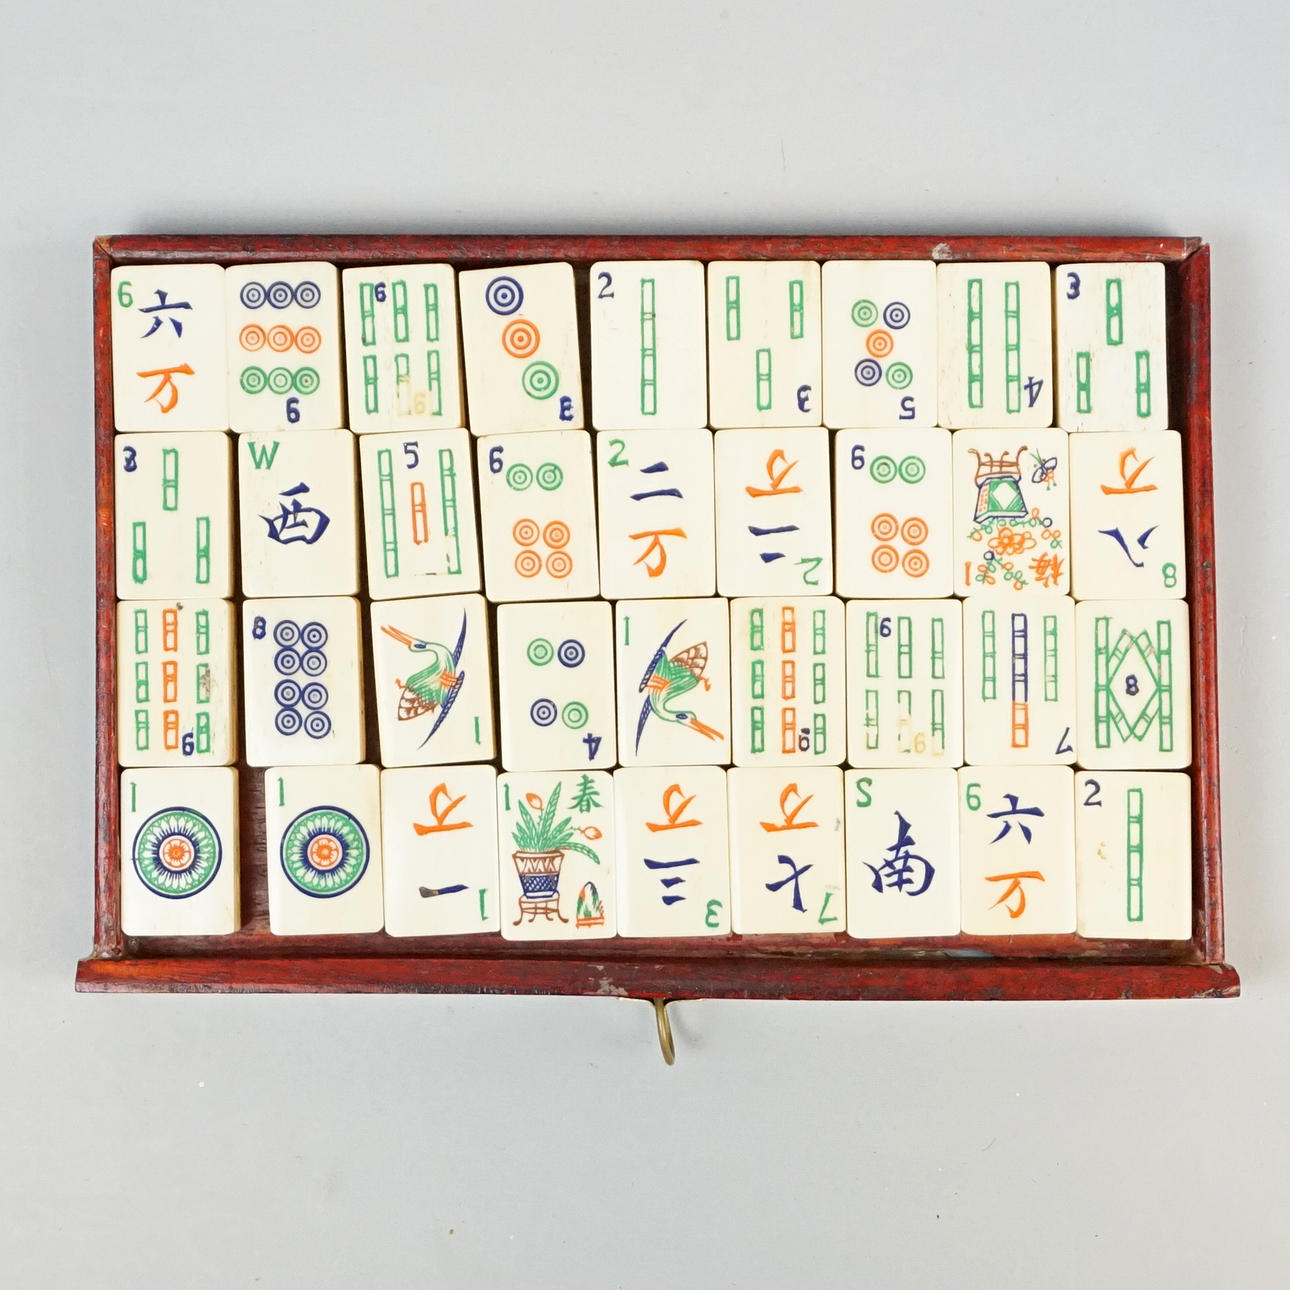 6 六 万
9
6 9
3
2
3
5
4
3
3
W 西
5
6
2 二 万
万 二 2
6
梅 1
万 八 8
9
8
1
4
1
9
6 9
7
8
1
1
万 一 1
1 春
万 三 3
万 七 7
S 南
6 六 万
2